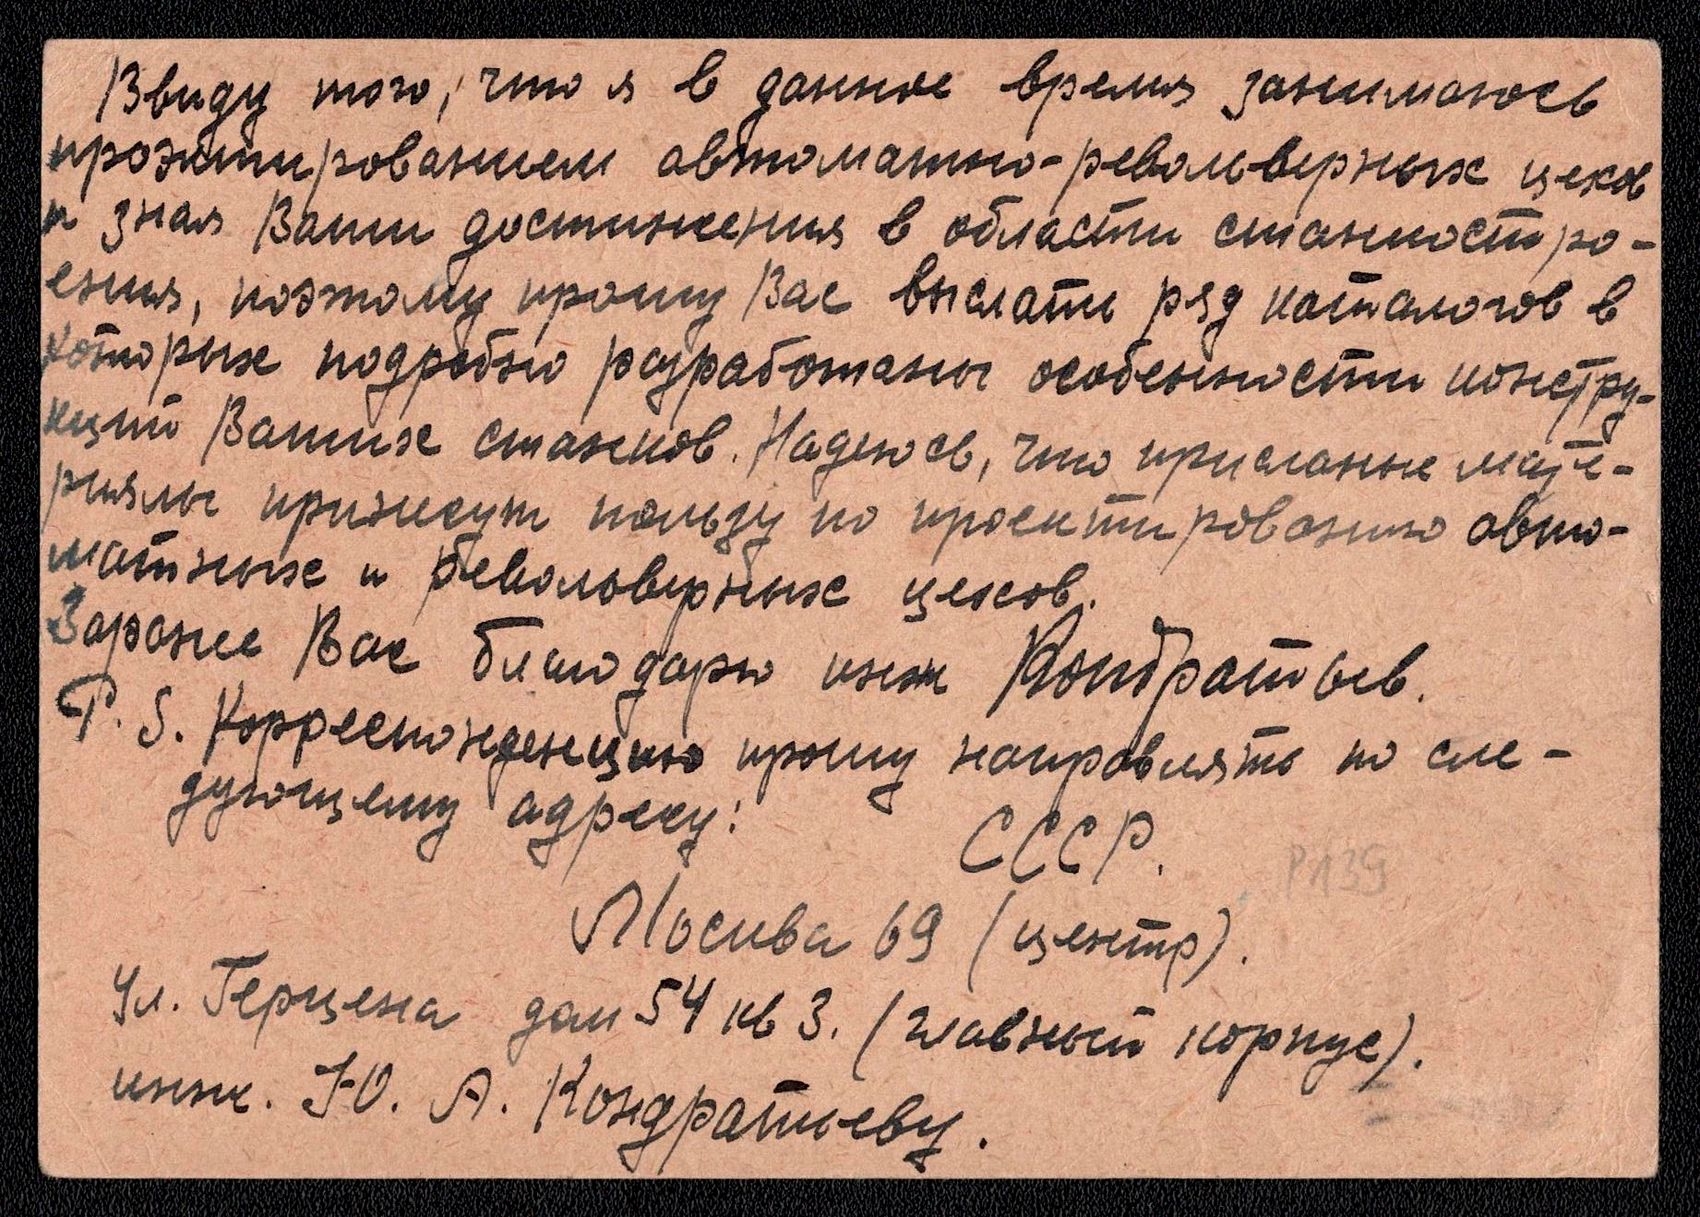 Ввиду того, что я в данное время занимаюсь
проэктированием автоматно-револьверных цехов
и зная Ваши достижения в области станкостро-
ения, поэтому прошу Вас выслать ряд каталогов в
которых подробно разработаны особенности констру-
кций Ваших станков. Надеюсь, что присланые мате-
риялы принесут пользу по проектированию авто-
матных и револьверных цехов.
Заранее Вас благодарю инж Кондратьев.
P.S. Корреспонденцию прошу направлять по сле-
дующему адресу:
СССР.
P139
Москва 69 (центр).
Ул. Герцена дом 54 кв 3. (главный корпус).
инж. Ю. А. Кондратьеву.